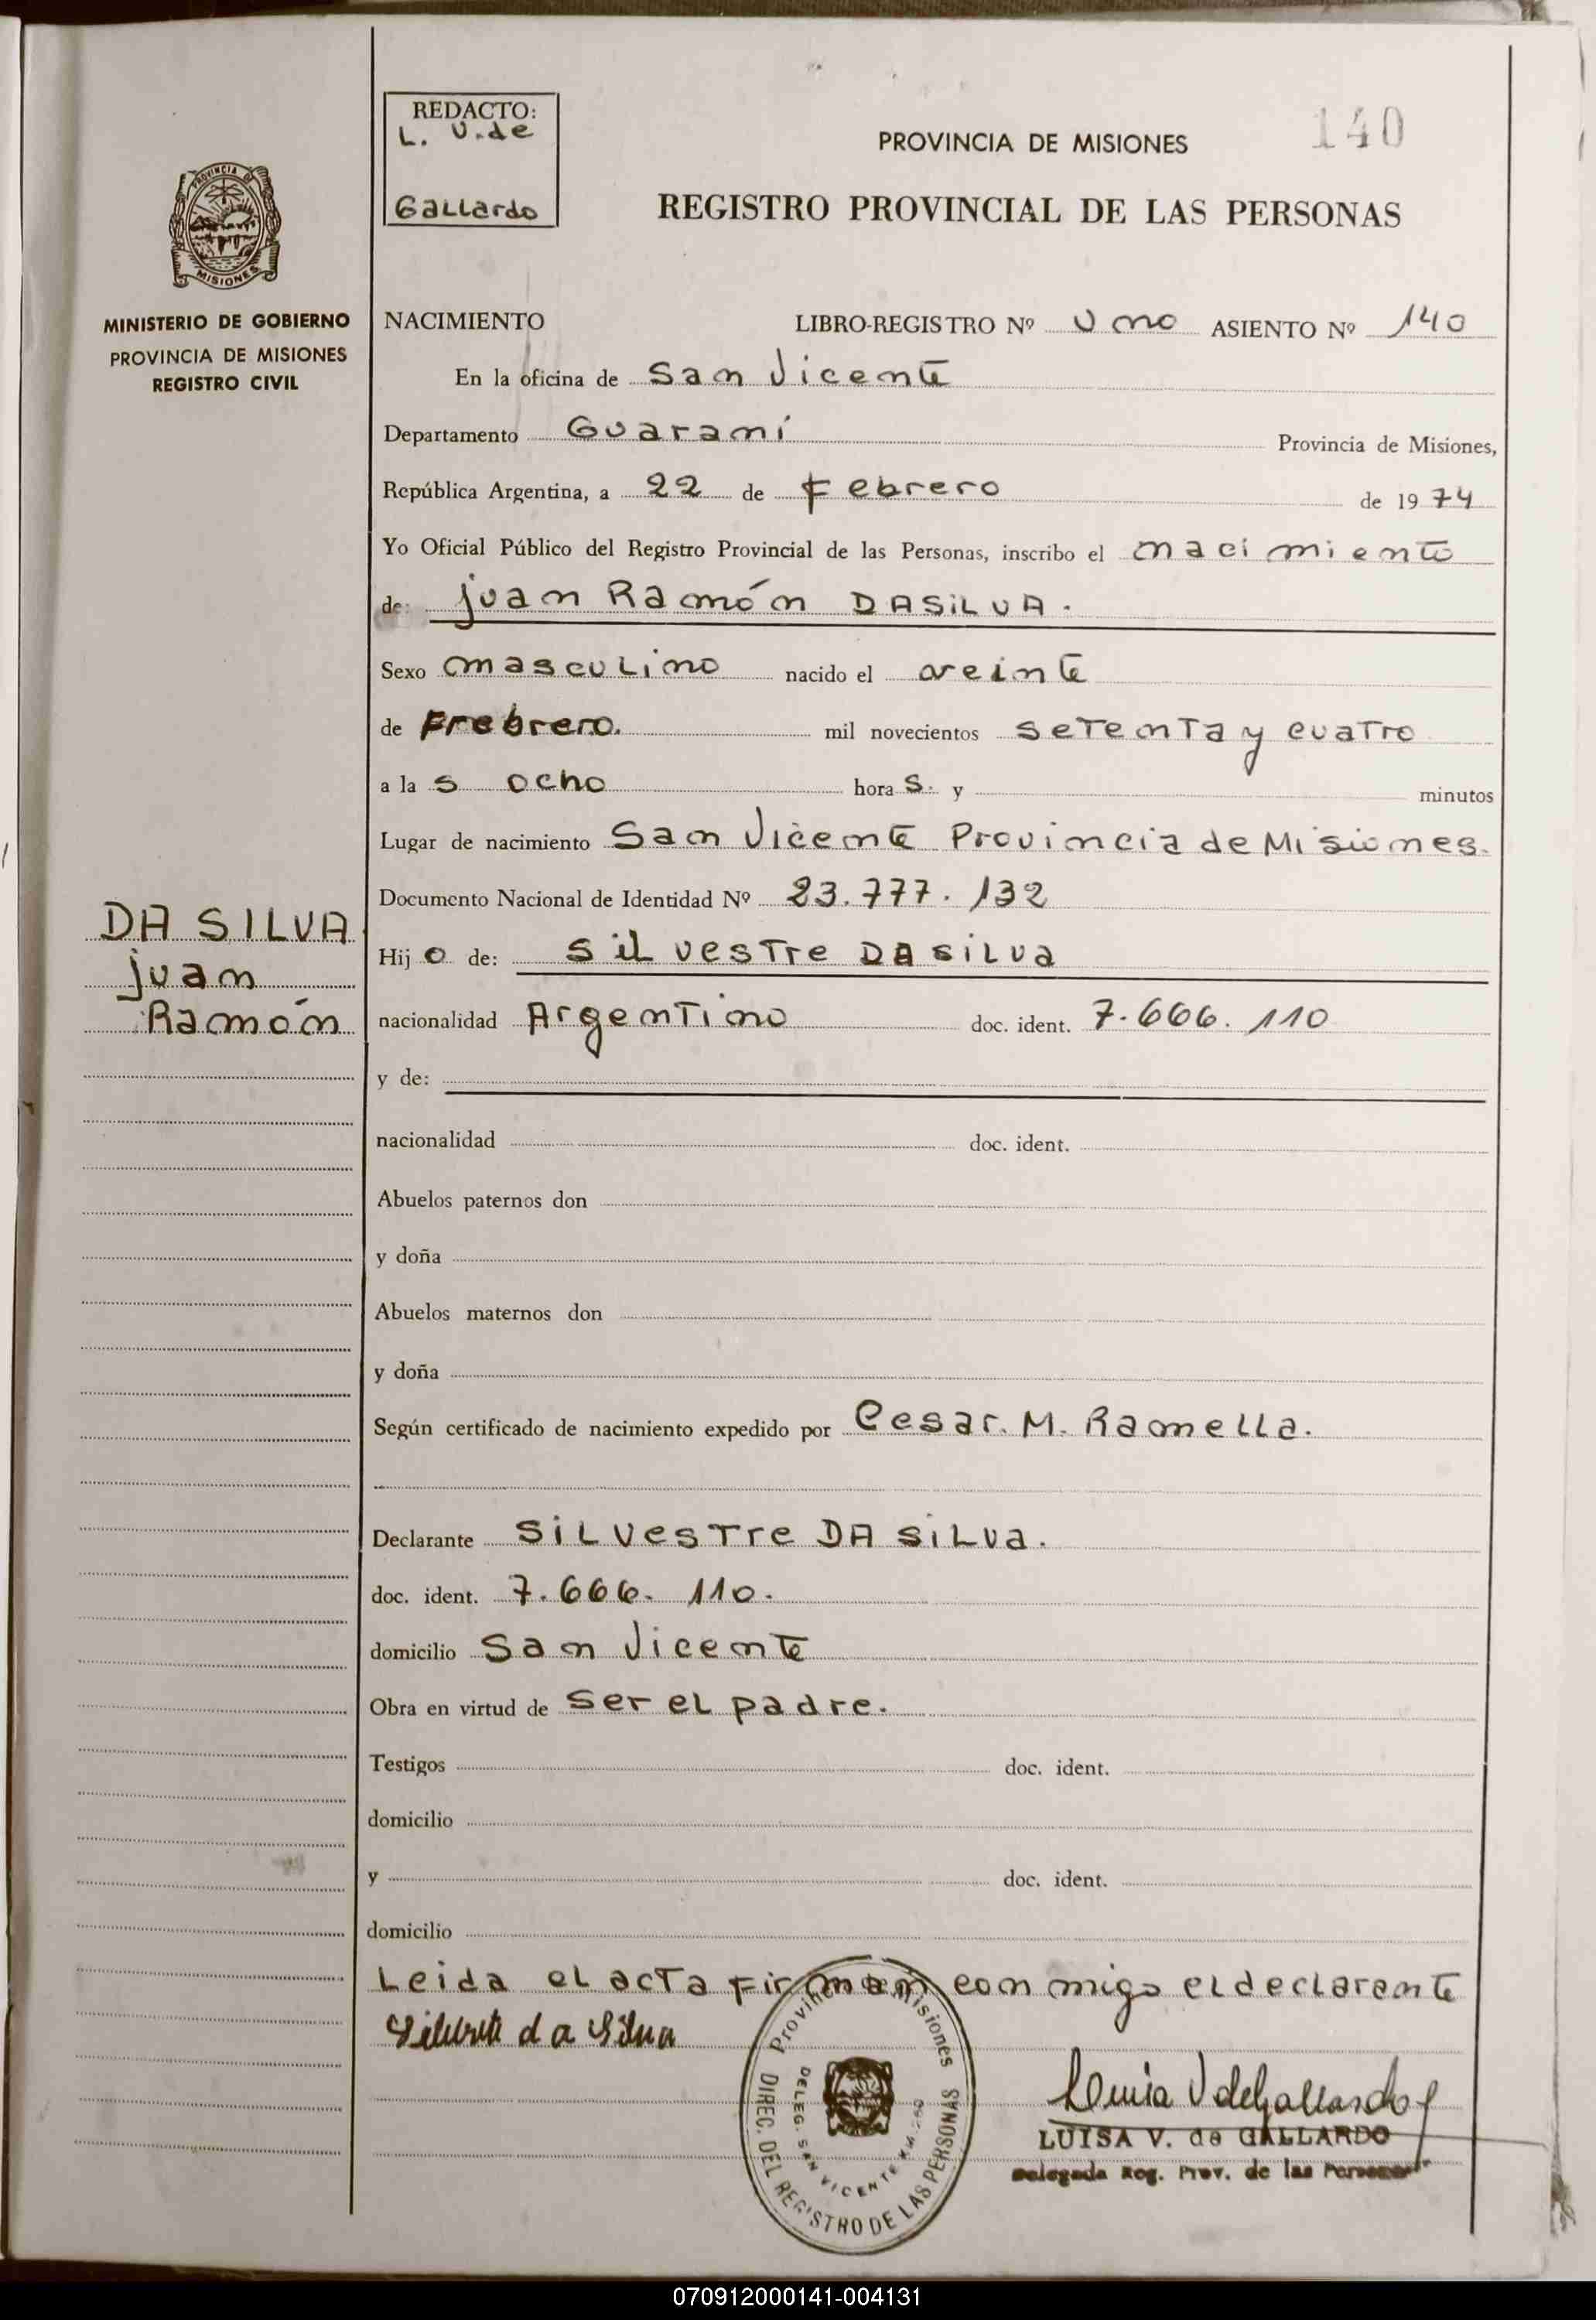 REDACTO:
L. V. de
Gallardo
PROVINCIA DE MISIONES
140
REGISTRO PROVINCIAL DE LAS PERSONAS
PROVINCIA DE
MISIONES
MINISTERIO DE GOBIERNO
PROVINCIA DE MISIONES
REGISTRO CIVIL
NACIMIENTO LIBRO-REGISTRO Nº Uno ASIENTO Nº 140
En la oficina de San Vicente
Departamento Guaraní Provincia de Misiones,
República Argentina, a 22 de Febrero de 1974
Yo Oficial Público del Registro Provincial de las Personas, inscribo el nacimiento
de: Juan Ramón DASILVA.
Sexo masculino nacido el veinte
de Frebrero. mil novecientos setenta y cuatro
a las ocho horas. y minutos
Lugar de nacimiento San Vicente Provincia de Misiones.
Documento Nacional de Identidad Nº 23.777.132
DA SILVA
Juan
Ramón
Hijo de: Silvestre DA SILVA
nacionalidad Argentino doc. ident. 7.666.110
y de:
nacionalidad doc. ident.
Abuelos paternos don
y doña
Abuelos maternos don
y doña
Según certificado de nacimiento expedido por Cesar. M. Ramella.
Declarante SILVESTre DA SILVa.
doc. ident. 7.666.110.
domicilio San Vicente
Obra en virtud de ser el padre.
Testigos doc. ident.
domicilio
y doc. ident.
domicilio
Leida el acta Firman conmigo el declarante
Silvestre da Silva
Provincia de Misiones
DIREC. DEL REGISTRO DE LAS PERSONAS
DELEG. SAN VICENTE
Luisa V de Gallardo
LUISA V. de GALLARDO
Delegada Reg. Prov. de las Personas
070912000141-004131